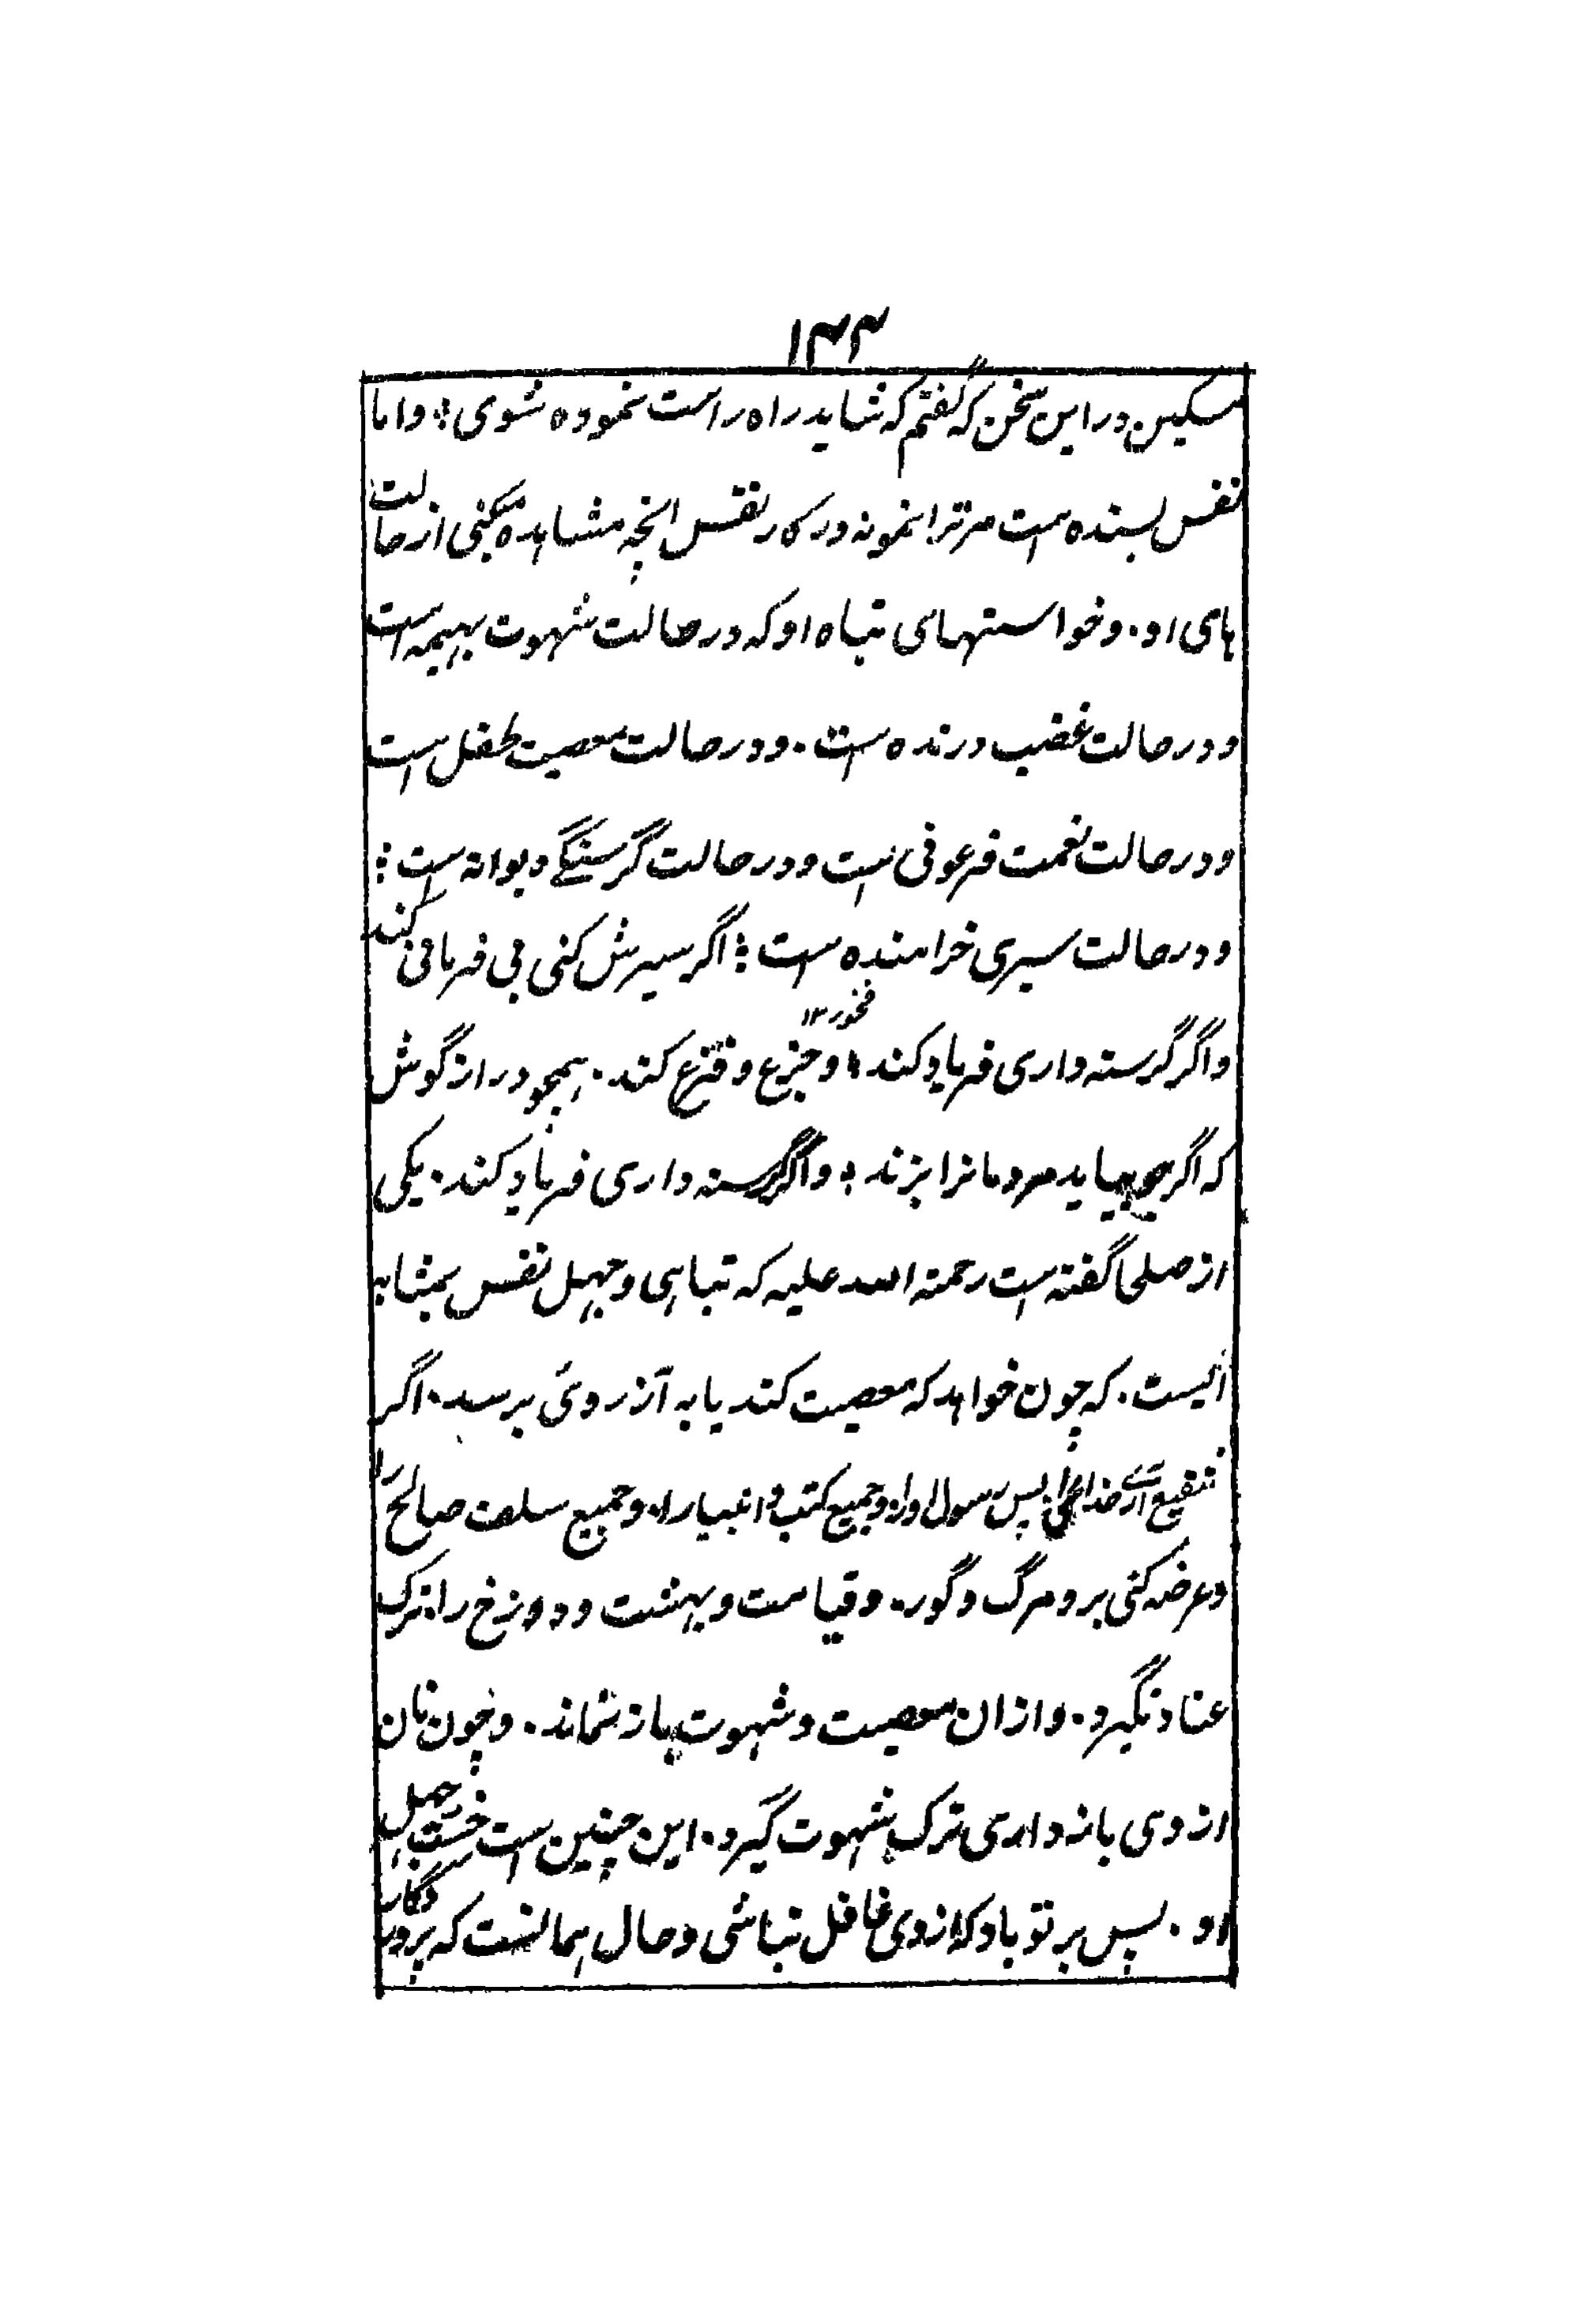 ۱۴۴
مسکین در این سخن که گفتم که شاید راه راست نموده شوی ؛ واما
نفس بسنده است مر ترا نمونه در کار نفس انچه مشاهده میکنی از حالت
های او . و خواستهای تباه او که در حالت شهوت بهیمه است
و در حالت غضب درنده است . و در حالت معصیت طفل است
و در حالت نعمت فرعونی است و در حالت گرسنگی دیوانه است :
و در حالت سیری خرامنده است ؛ اگر سیرش کنی بی فرمانی کند
فخور ۱۲
و اگر گرسنه داری فریاد کند ؛ و جزع و فزع کند . همچو دراز گوش
که اگر جو بیابد مردمانرا بزند ؛ و اگر گرسنه داری فریاد کند . یکی
از صلحا گفته است رحمته الله علیه که تباهی و جهل نفس بمثابه
ایست . که چون خواهد که معصیت کند یا به آرزوئی برسد . اگر
شفیع آری خدا پس رسول او را و جمیع کتب و انبیا را . و جمیع سلف صالح را
و عرضه کنی برو مرگ و گور . و قیامت و بهشت و دوزخ را . ترک
عناد نگیرد . و از ان معصیت و شهوت باز نماند . و چون نان
از وی باز داری ترک شهوت گیرد . این چنین است خست و جهل
او . پس بر تو باد که از وی غافل نباشی و حال همانست که پروردگار